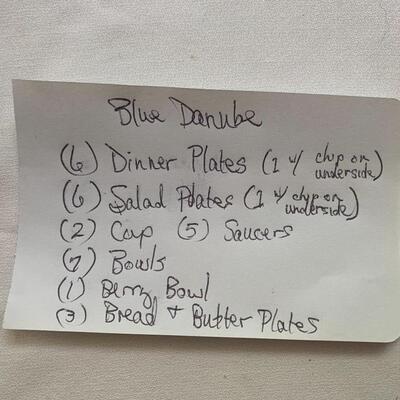 Blue Danube
(6) Dinner Plates (1 w/ chip on underside)
(6) Salad Plates (1 w/ chip on underside)
(2) Cup (5) Saucers
(7) Bowls
(1) Berry Bowl
(3) Bread + Butter Plates